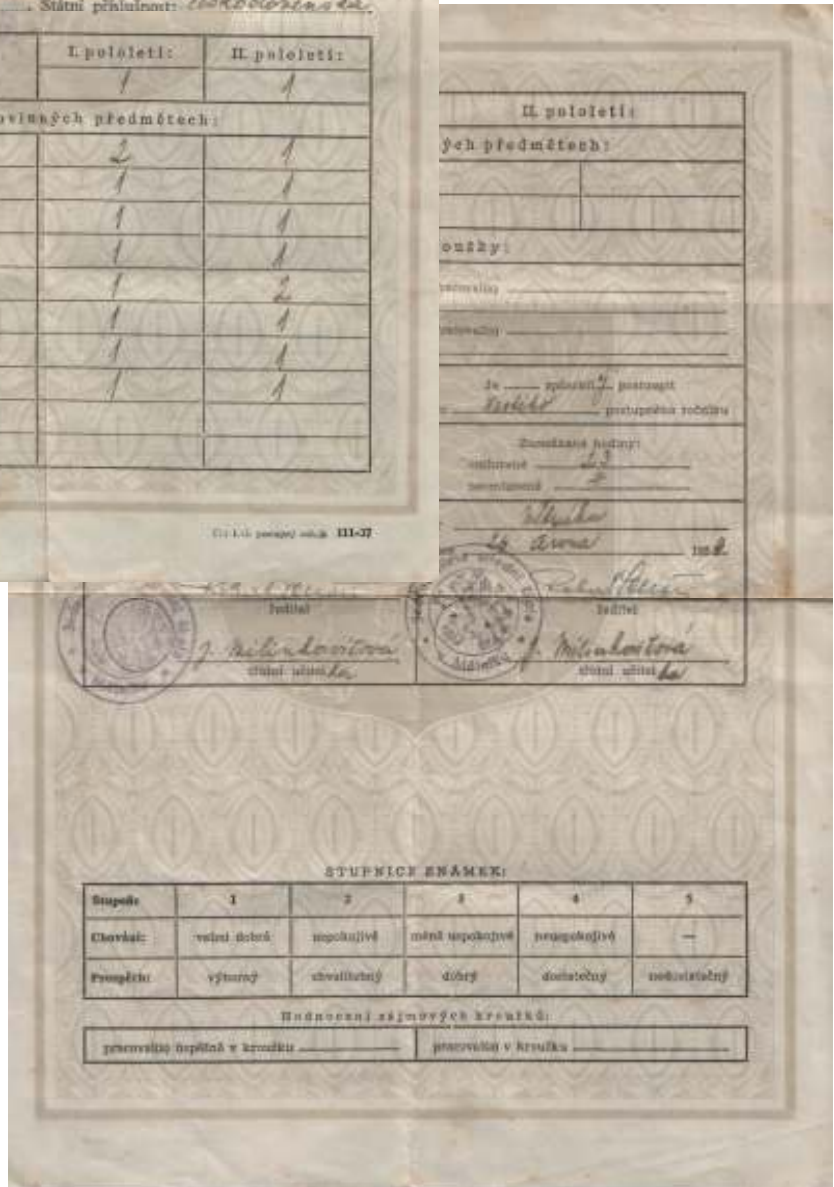 Státní příslušnost: československá
I. pololetí: II. pololetí:
1 1
ovinných předmětech:
2 1
1 1
1 1
1 1
1 2
1 1
1 1
1 1
111-37
II. pololetí:
ých předmětech:
oužky:
pracoval(a)
pracoval(a)
Je způsobilý postoupit
postupného ročníku
Zameškané hodiny:
omluvené 23
neomluvené
června 195
ředitel ředitel
J. Milinkovitová J. Milinkovitová
třídní učitelka třídní učitelka
STUPNICE ZNÁMEK:
Stupeň: 1 2 3 4 5
Chování: velmi dobré uspokojivé méně uspokojivé neuspokojivé —
Prospěch: výborný chvalitebný dobrý dostatečný nedostatečný
Hodnocení zájmových kroužků:
pracoval(a) úspěšně v kroužku pracoval(a) v kroužku